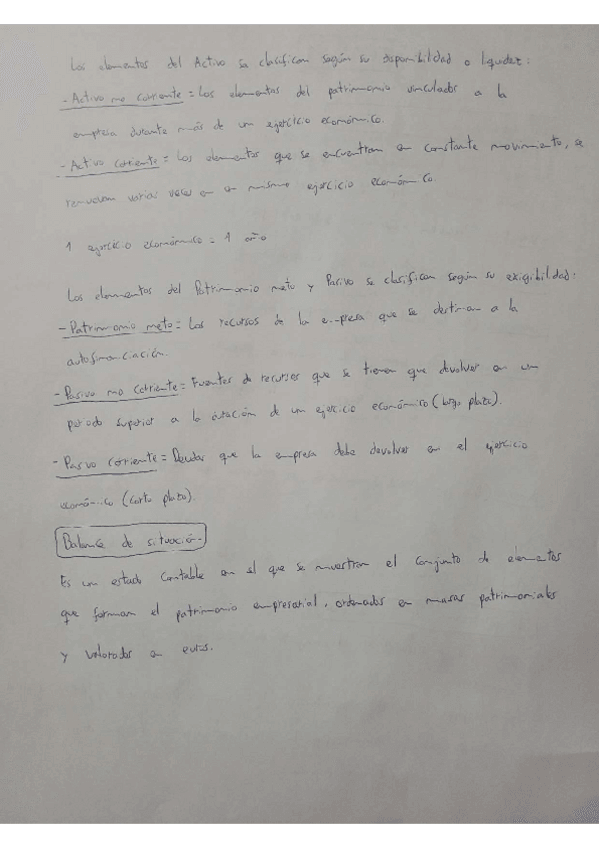 Los elementos del Activo se clasifican según su disponibilidad o liquidez:
- Activo no corriente = Los elementos del patrimonio vinculados a la
empresa durante más de un ejercicio económico.
- Activo corriente = Los elementos que se encuentran en constante movimiento, se
renuevan varias veces en un mismo ejercicio económico.
1 ejercicio económico = 1 año
Los elementos del Patrimonio neto y Pasivo se clasifican según su exigibilidad:
- Patrimonio neto = Los recursos de la empresa que se destinan a la
autofinanciación.
- Pasivo no corriente = Fuentes de recursos que se tienen que devolver en un
periodo superior a la duración de un ejercicio económico (largo plazo).
- Pasivo corriente = Deudas que la empresa debe devolver en el ejercicio
económico (corto plazo).
Balance de situación.
Es un estado contable en el que se muestran el conjunto de elementos
que forman el patrimonio empresarial, ordenados en masas patrimoniales
y valorados en euros.